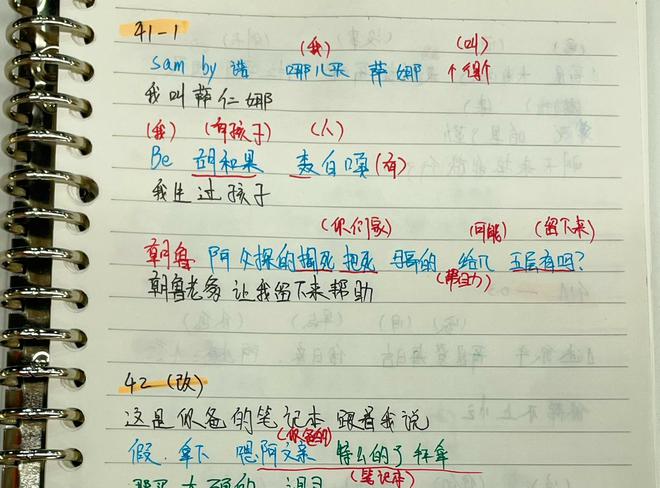 41-1
(我) (叫)
sam by 诺 哪儿买 萨娜 个
我叫萨仁娜
(我) (有孩子) (人)
Be 胡和果 麦白嘎(有)
我生过孩子
(你们家) (可能) (留下来)
朝鲁 阿 的 把死 的 给几 五层有吗?
(帮助)
朝鲁老爹 让我留下来帮助
42 (改)
这是你爸的笔记本 跟着我说
(你爸的)
假. 拿下 嗯阿文亲 特么的了 杯拿
(笔记本)